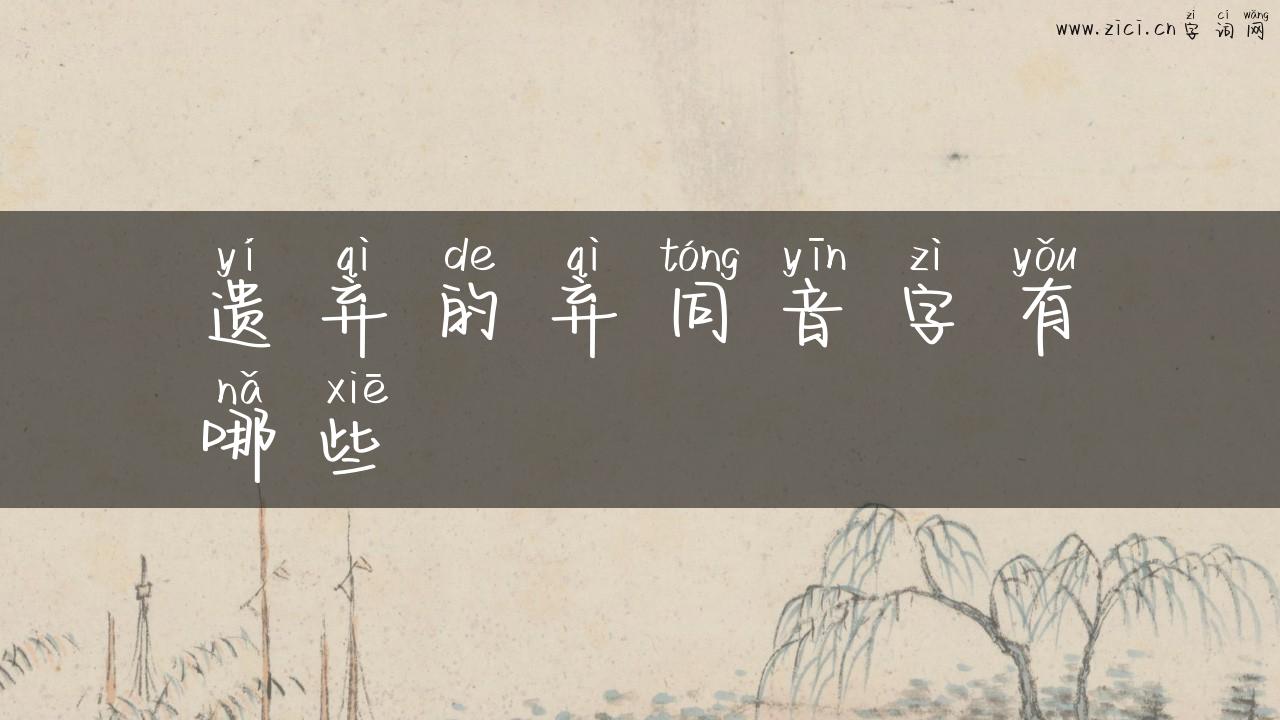 zì cí wǎng
www.zici.cn 字 词 网
yí qì de qì tóng yīn zì yǒu
遗 弃 的 弃 同 音 字 有
nǎ xiē
哪 些